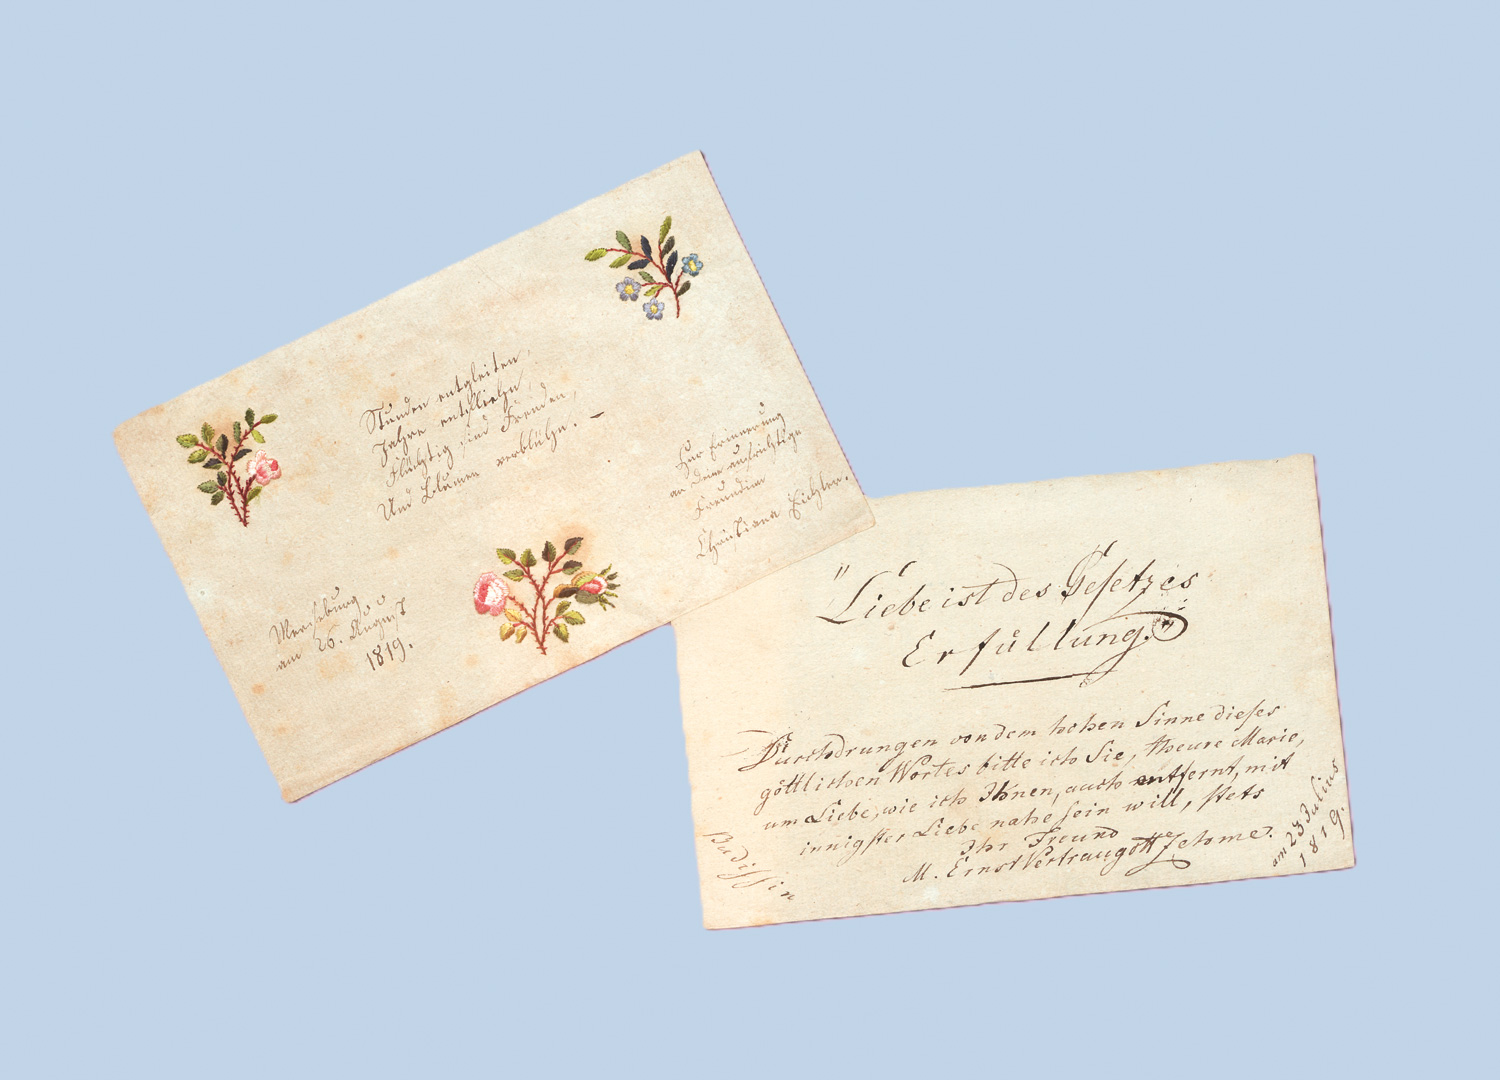 Stunden entgleiten,
Jahre entfliehn,
Flüchtig sind Freuden,
Und Blumen verblühn. –
Zur Erinnerung
an Deine aufrichtige
Freundin
Christiana Eichler.
Merseburg
am 26. August
1819.
"Liebe ist des Gesetzes
Erfüllung."
Durchdrungen von dem hohen Sinne dieses
göttlichen Wortes bitte ich Sie, theure Marie,
um Liebe, wie ich Ihnen, auch entfernt, mit
innigster Liebe nahe sein will, stets
Ihr Freund
M. Ernst Vertraugott
Budissin
am 23 Julius
1819.